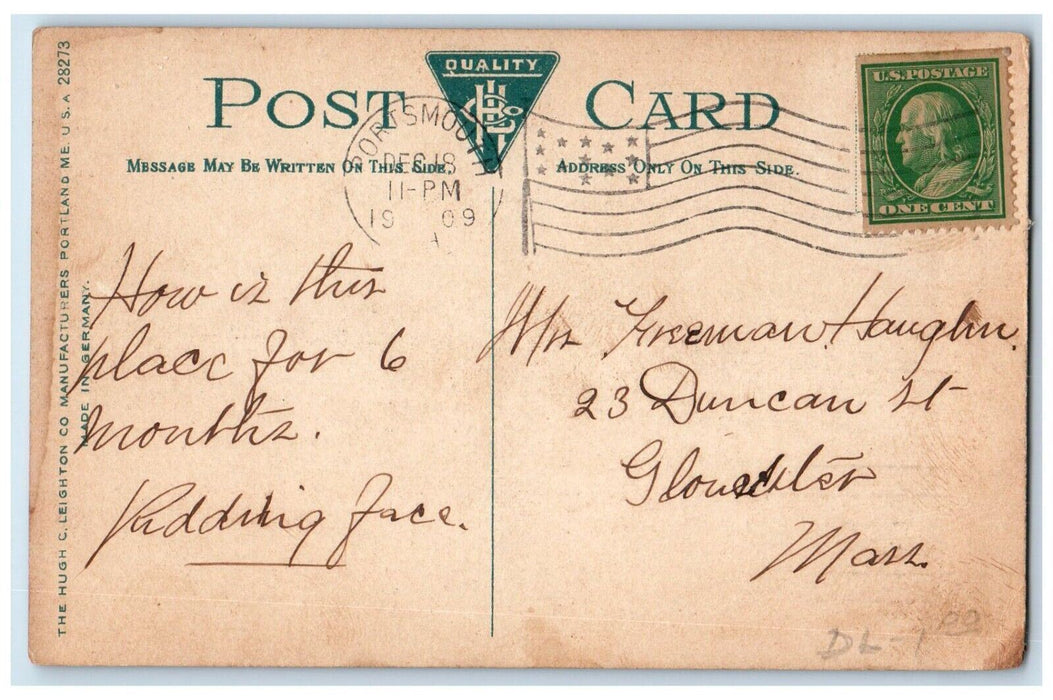 QUALITY
POST CARD
MESSAGE MAY BE WRITTEN ON THIS SIDE.
ADDRESS ONLY ON THIS SIDE.
PORTSMOUTH
DEC 18
11-PM
19 09
A
U.S. POSTAGE
ONE CENT
How is this
place for 6
months.
Pudding face.
Mrs Freeman Haughn.
23 Duncan St
Gloucester
Mass.
DL-1 00
THE HUGH C. LEIGHTON CO MANUFACTURERS PORTLAND ME. U.S.A 28273
MADE IN GERMANY.